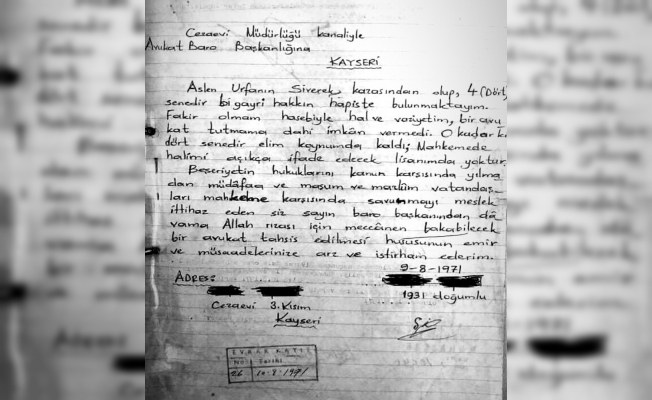 Cezaevi Müdürlüğü kanaliyle
Avukat Baro Başkanlığına
KAYSERİ
Aslen Urfanın Siverek kazasından olup, 4 (Dört)
senedir bigayri hakkın hapiste bulunmaktayım.
Fakir olmam hasebiyle hal ve vaziyetim, bir avu
kat tutmama dahi imkân vermedi. O kadar ki
dört senedir elim koynumda kaldı; Mahkemede
halimi açıkça ifade edecek lisanımda yoktur.
Beşeriyetin hukuklarını kanun karşısında yılma
dan müdafaa ve masum ve mazlüm vatandaş
ları mahkeme karşısında savunmayı meslek
ittihaz eden siz sayın baro başkanından dâ
vama Allah rızası için meccânen bakabilecek
bir avukat tahsis edilmesi hususunun emir
ve müsaadelerinize arz ve istirham ederim.
9-8-1971
ADRES:
1931 doğumlu
Cezaevi 3. Kısım
Kayseri
EVRAK KAYIT
No Tarihi
26 10.8.1971